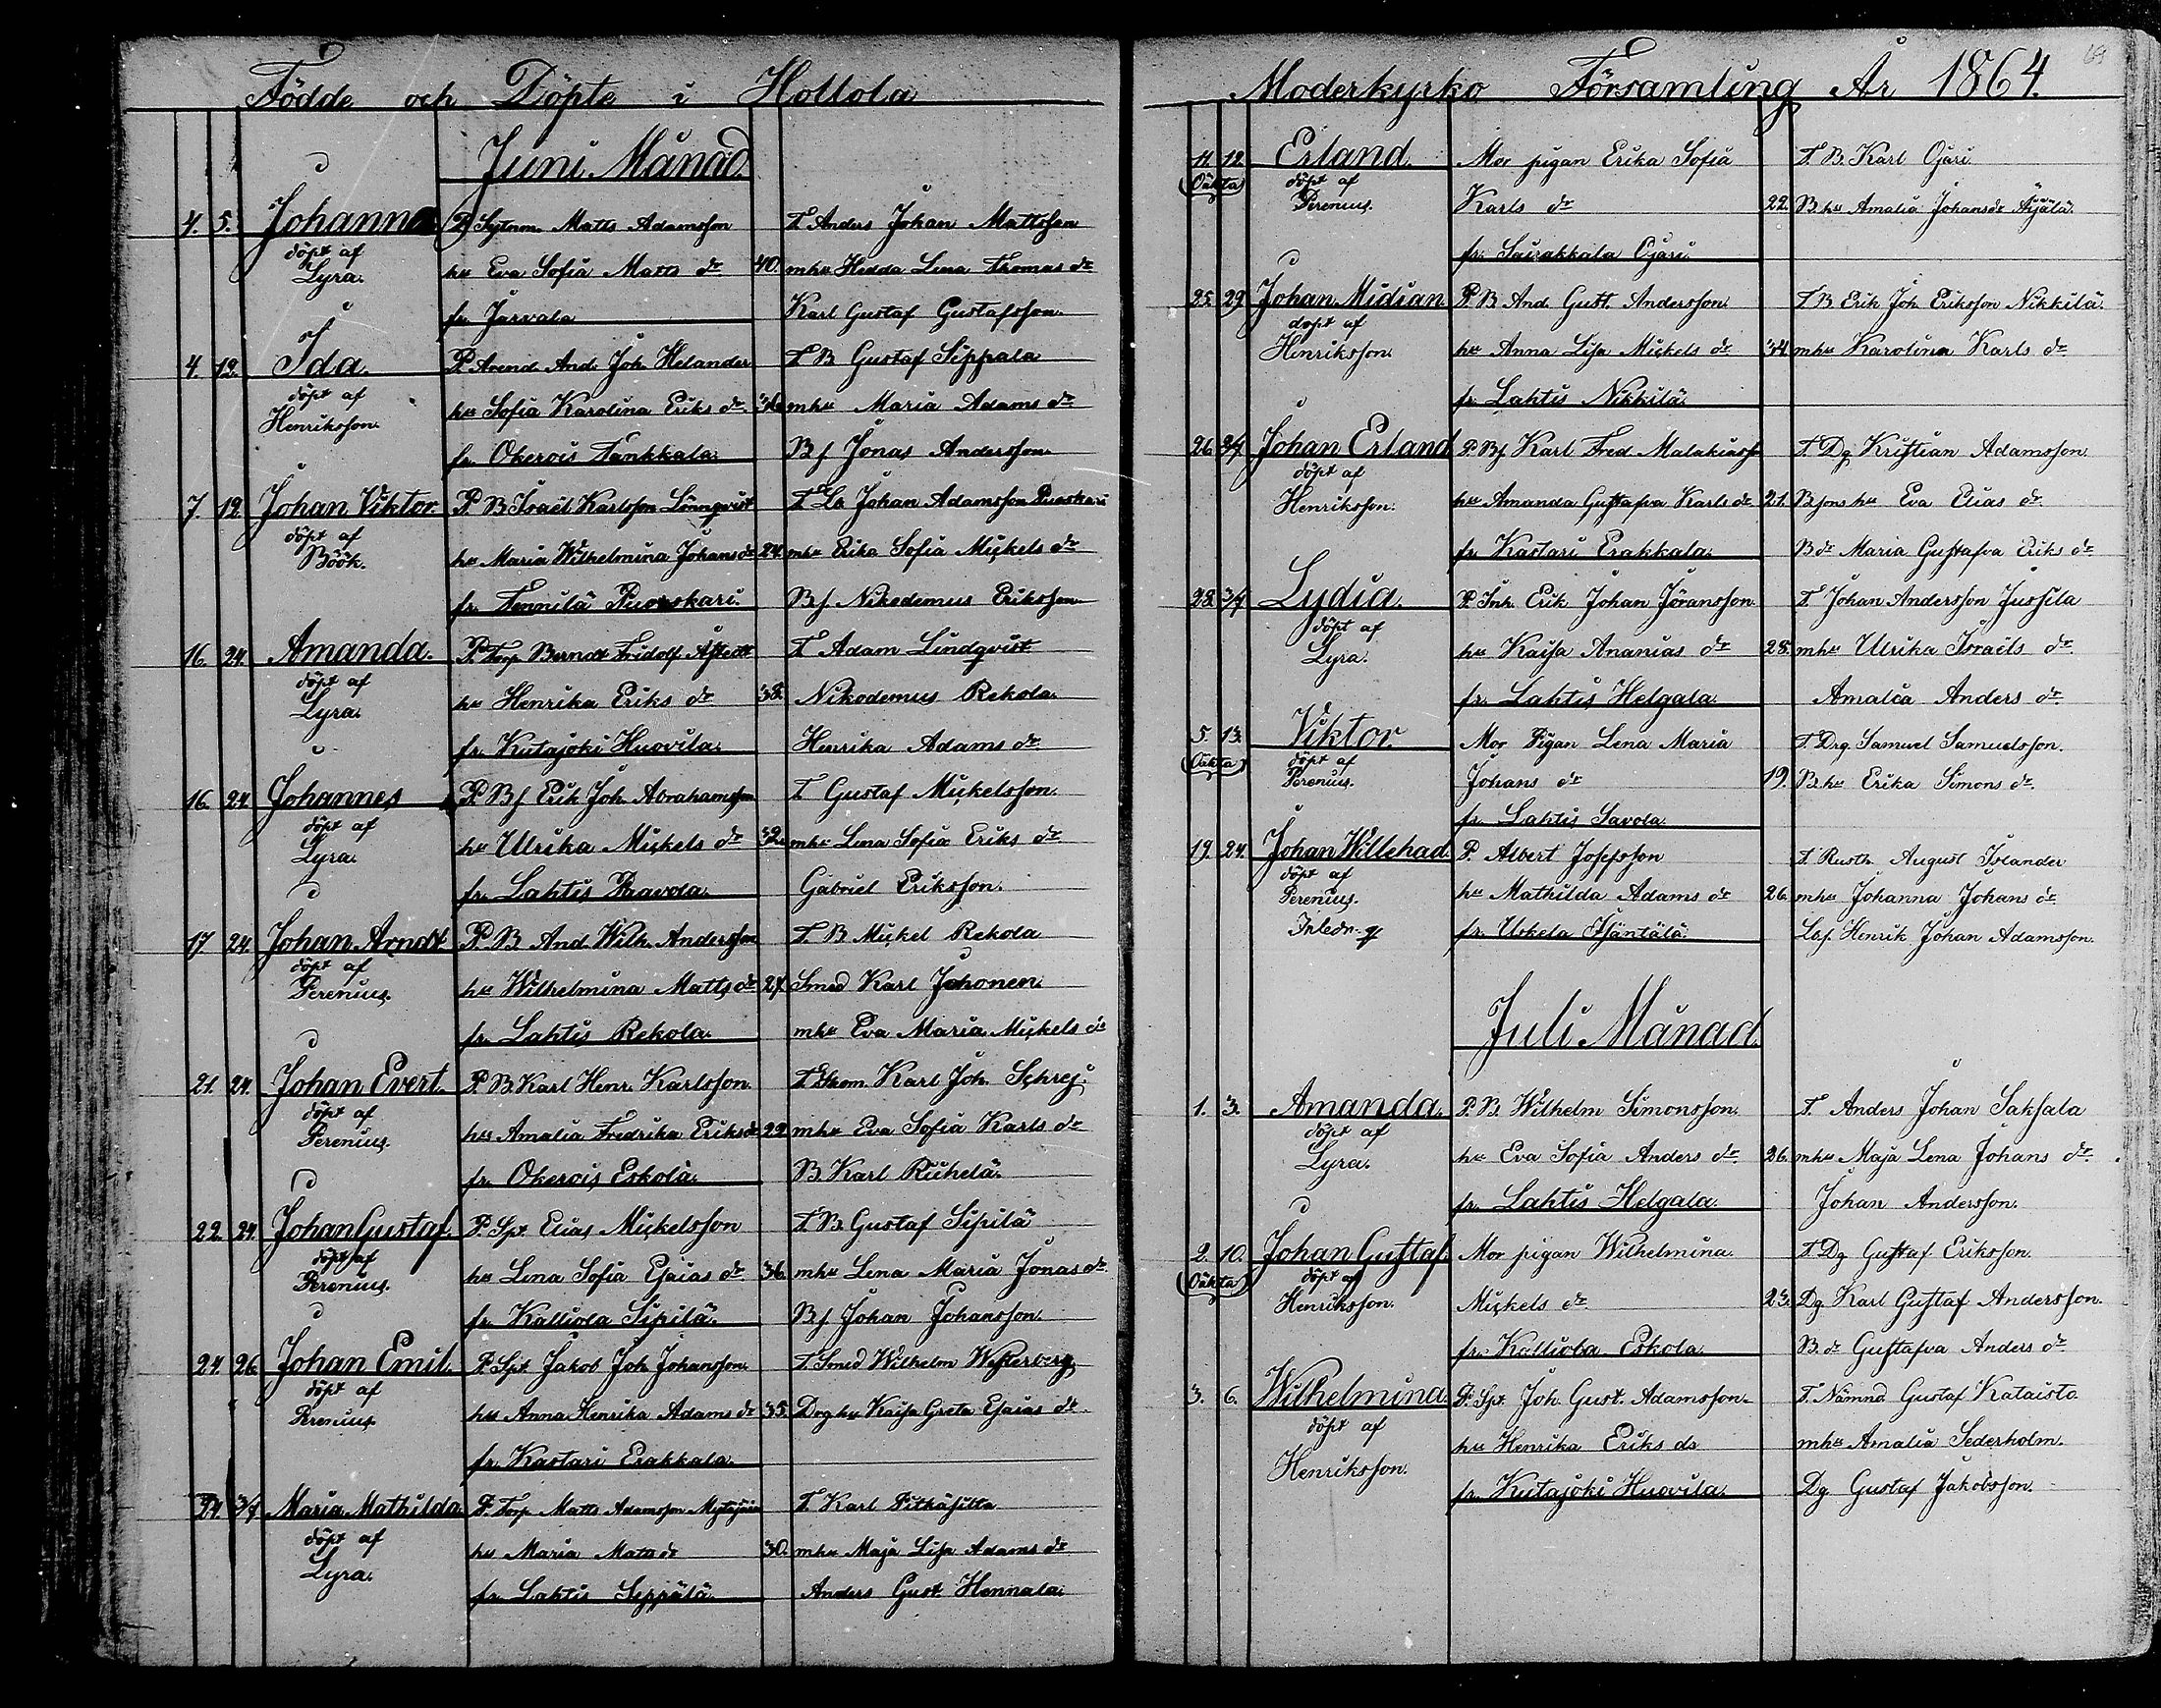 Födde och Döpte i Hollola
Juni Månad
4. 5. Johanna P. Sytnm. Matts Adamsson T Anders Johan Mattsson
döpt af Lyra. hu Eva Sofia Matts dr 40. mhu Hedda Lena Thomas dr
fr. Jarvala Karl Gustaf Gustafsson.
4. 12. Ida. P. Arend. And. Joh. Helander T B Gustaf Sippala
döpt af Henriksson. hu Sofia Karolina Eriks dr mhu Maria Adams dr
fr. Okerois Tankkala Bf Jonas Andersson.
7. 12. Johan Viktor P. B Israel Karlsson Lönnqvist T Johan Adamsson Puoskari
döpt af Böök. hu Maria Wilhelmina Johans dr 24. mhu Erika Sofia Mickels dr
fr. Tennilä Puorskari. Bf Nikodemus Eriksson
16. 24. Amanda. P. Torp Berndt Fridolf T Adam Lindqvist
döpt af Lyra. hu Henrika Eriks dr 38. Nikodemus Rekola.
fr. Kutajoki Huovila. Henrika Adams dr
16. 24. Johannes P. Bf Erik Joh. Abrahamsson T Gustaf Mickelsson.
döpt af Lyra. hu Ulrika Mickels dr 32. mhu Lena Sofia Eriks dr
fr. Lahtis Paavola. Gabriel Eriksson.
17. 24. Johan Arndt P. B And. Wilh. Andersson T. B Mickel Rekola
döpt af Perenius. hu Wilhelmina Matts dr 27. Smed Karl Jahonen.
fr. Lahtis Rekola. mhu Eva Maria Mickels dr
21. 24. Johan Evert. P. B. Karl Henr. Karlsson. T. Skom. Karl Joh. Schrej.
döpt af Perenius. hu Amalia Fredrika Eriks dr 22. mhu Eva Sofia Karls dr
fr. Okerois Eskola. B. Karl Riihelä.
22. 24. Johan Gustaf. P. Spt. Elias Mickelsson T B. Gustaf Sipilä
döpt af Perenius. hu Lena Sofia Esaias dr 36. mhu Lena Maria Jonas dr
fr. Kalliola Sipilä. Bf Johan Johansson.
24. 26. Johan Emil. P. Spt. Jakob Joh. Johansson. T. Smed Wilhelm Westerberg
döpt af Perenius hu Anna Henrika Adams dr 35. Drg hu Kaisa Greta Esaias dr
fr. Kastari Erakkala
24. 3/7 Maria Mathilda P. Torp Matts Adamsson T. Karl Pitkäsilta
döpt af Lyra. hu Maria Mats dr 30. mhu Maja Lisa Adams dr
fr. Lahtis Seppälä. Anders Gust. Hennala.
Moderkyrko Församling År 1864.
69
11. 12. Erland. Mor pigan Erika Sofia T. B. Karl Ojari
(Oäkta) döpt af Perenius. Karls dr 22. B. hu Amalia Johans dr Äijälä.
fr. Sairakkala Ojari.
25. 29. Johan Midian. P. B And. Gust. Andersson. T B Erik Joh. Eriksson Nikkilä.
döpt af Henriksson. hu Anna Lisa Mickels dr 44. mhu Karolina Karls dr
fr. Lahtis Nikkilä.
26. 3/7 Johan Erland P. Bf Karl Fred Malakiasson T. Dg Kristian Adamsson.
döpt af Henriksson. hu Amanda Gustafva Karls dr 21. Bsons hu Eva Elias dr
fr. Kastari Erakkala. B dr Maria Gustafva Eriks dr
28. 3/7 Lydia. P. Inh. Erik Johan Jöransson. T Johan Andersson Jussila
döpt af Lyra. hu Kaisa Ananias dr 28. mhu Ulrika Israels dr.
fr. Lahtis Helgala. Amalia Anders dr.
5. 13. Viktor. Mor Pigan Lena Maria T. Drg. Samuel Samuelsson.
(Oäkta) döpt af Perenius. Johans dr 19. B. hu Erika Simons dr.
fr. Lahtis Savola.
19. 24. Johan Willehad. P. Albert Josefsson T Rusth. August Islander
döpt af Perenius. hu Mathilda Adams dr 26. mhu Johanna Johans dr
fr. Uskela Tjäntälä. Henrik Johan Adamsson.
Juli Månad.
1. 3. Amanda. P. B. Wilhelm Simonsson. T. Anders Johan Saksala
döpt af Lyra. hu Eva Sofia Anders dr. 26. mhu Maja Lena Johans dr.
fr. Lahtis Helgala. Johan Andersson.
2. 10. Johan Gustaf. Mor pigan Wilhelmina T. Dg Gustaf Eriksson.
(Oäkta) döpt af Henriksson. Mickels dr 23. Dg. Karl Gustaf Andersson.
fr. Kalliola Eskola. B. dr Gustafva Anders dr
3. 6. Wilhelmina. P. Spt. Joh. Gust. Adamsson. T. Nämnd Gustaf Kataisto
döpt af Henriksson. hu Henrika Eriks dr mhu Amalia Sederholm.
fr. Kutajoki Huovila. Dg. Gustaf Jakobsson.